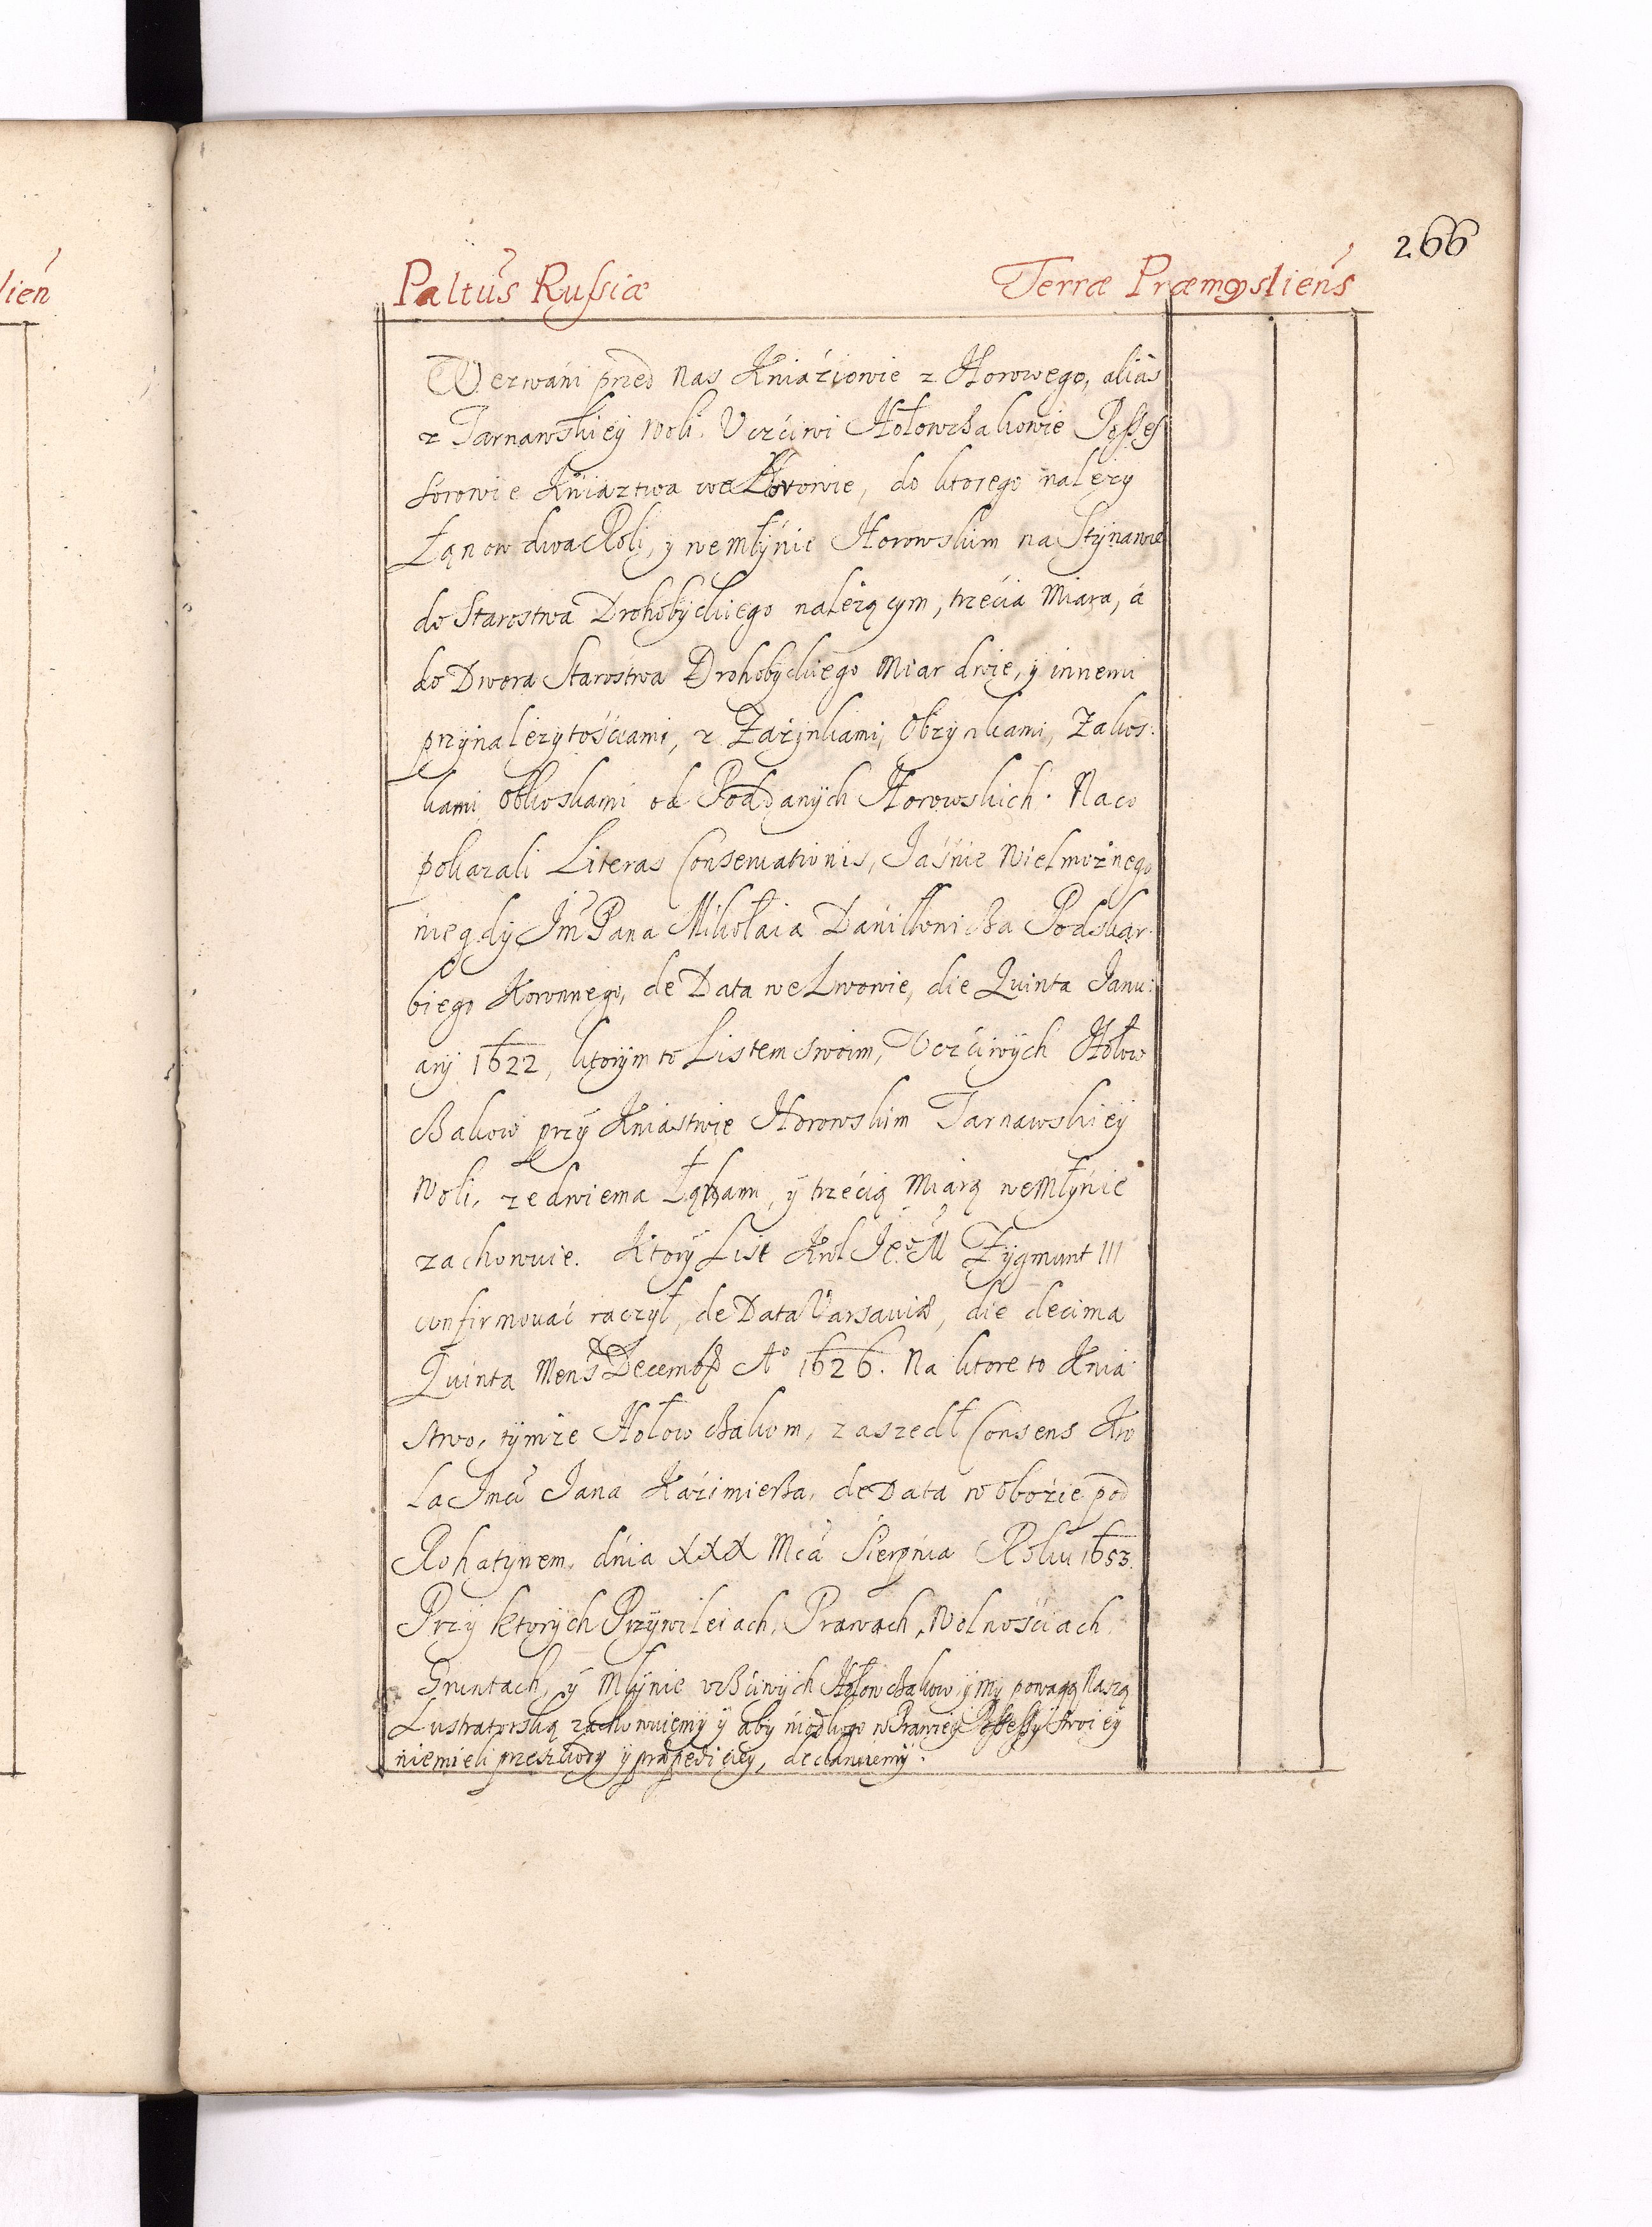 266
Paltus Russiæ Terræ Præmysliens
Wezwani przed nas Kniaziowie z Horowego, alias
z Tarnawskiey Woli. Uczciwi Hołowczakowie Posses
sorowie Kniaztwa we Horowie, do ktorego należy
Łanow dwa Roli, y we Młynie Horowskim na Stynawie
do Starostwa Drohobyckiego należącym, trzecia Miara, á
do Dwora Starostwa Drohobyckiego Miar dwie, y innemi
przynależytościami, z Zażynkami, Obzynkami, Zakos
kami, Obkoskami od Poddanych Horowskich. Na co
pokazali Literas Conservationis, Jaśnie Wielmożnego
niegdy Jm Pana Mikołaia Daniłłowicza Podskar
biego Koronnego, de Data we Lwowie, die Quinta Janu:
arij 1622, ktorym to Listem swoim, Uczciwych Hołow
czakow przy Kniastwie Horowskim Tarnawskiey
Woli, ze dwiema Łąkami, y trzecią Miarą we Młynie
zachowuie. Ktory List Krol Jeo M Zygmunt III
confirmować raczył, de Data Varsaviæ, die decima
Quinta Mens Decemb Ao 1626. Na ktore to Knia
stwo, tymże Hołowczakom, zaszedł Consens Kro
la Jmci Jana Kazimierza, de Data w obozie pod
Rohatynem, dnia XXX Mca Sierpnia Roku 1653.
Przy ktorych Przywileiach, Prawach, Wolnościach
Gruntach, y Młynie uczciwych Hołowczakow, y my powagą Naszą
Lustratorską zachowuiemy y aby niodkogo w Prawey Possessyi swoiey
niemieli przeszkody y præpedicięy, declaruiemy.
lien